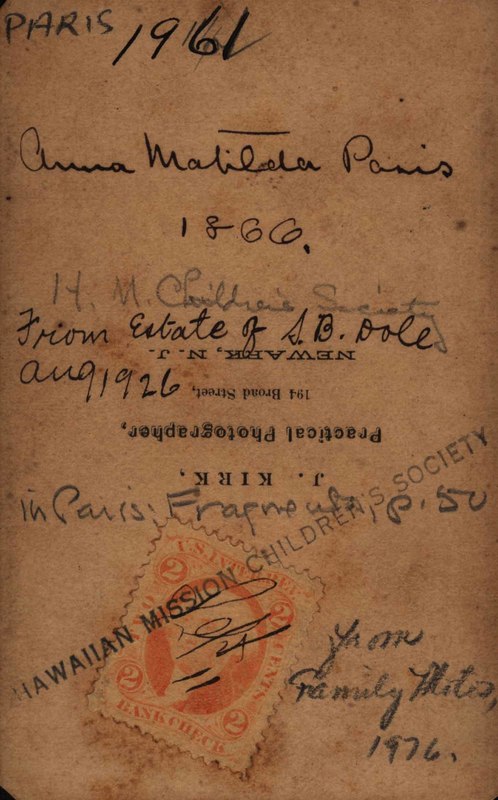 PARIS
1961
Anna Matilda Paris
1866.
H. M. Children's Society
From Estate of S. B. Dole
Aug 1926
NEWARK, N. J.
194 Broad Street,
Practical Photographer,
J. KIRK,
in Paris: Fragments, p. 50
HAWAIIAN MISSION CHILDREN'S SOCIETY
U.S. INTER. REV.
2 2
CENTS
2 2
BANK CHECK
from
Family
1976.